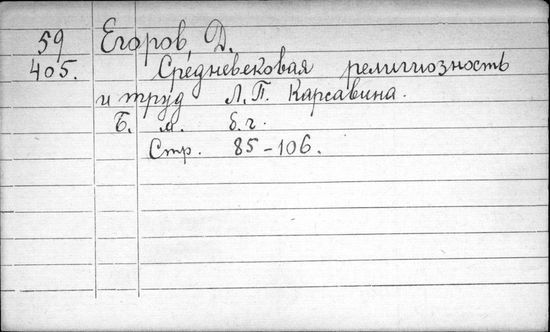 59 Егоров, Д.
405. Средневековая религиозность
и труд Л.П. Карсавина.
Б. м. б.г.
Стр. 85-106.